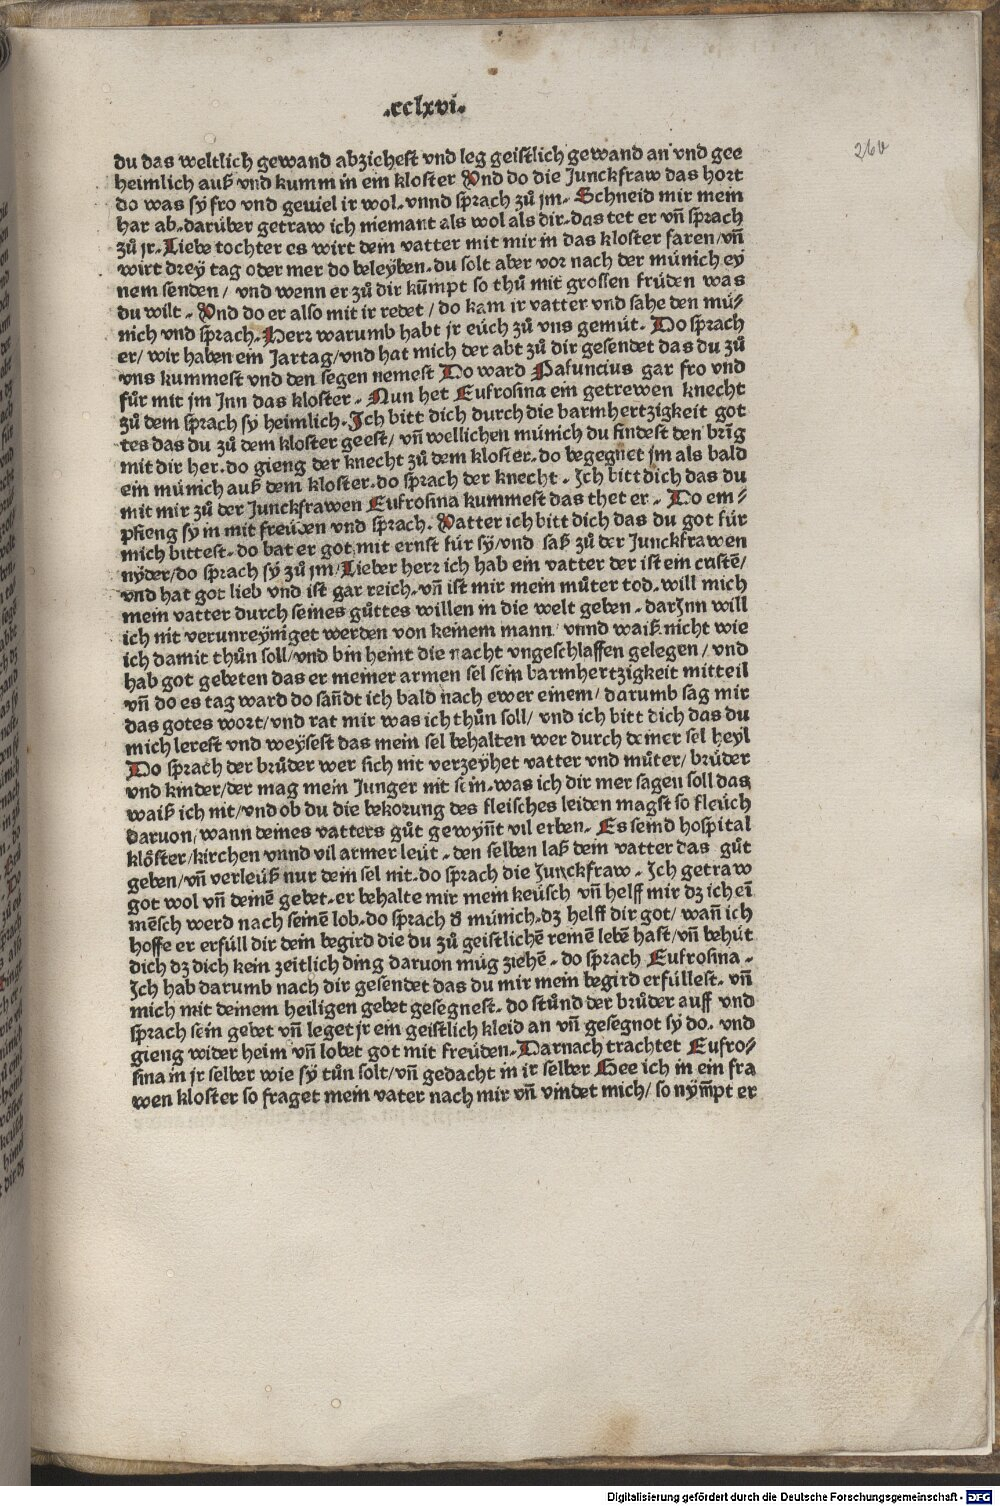 .cclxvi.
260
du das weltlich gewand abziehest vnd leg geistlich gewand an vnd gee
heimlich auß vnd kumm in ein kloster Vnd do die Junckfraw das hort
do was sy̆ fro vnd geuiel ir wol. vnnd sprach zů jm. Schneid mir mein
har ab. darüber getraw ich niemant als wol als dir. das tet er vñ sprach
zů jr. Liebe tochter es wirt dein vatter mit mir in das kloster faren/ vñ
wirt drey̆ tag oder mer do beley̆ben. du solt aber vor nach der münich ey
nem senden/ vnd wenn er zů dir kum̃pt so thů mit grossen früden was
du wilt. Vnd do er also mit ir redet/ do kam ir vatter vnd sahe den mü⸗
nich vnd sprach. Herr warumb habt jr eüch zů vns gemüt. Do sprach
er/ wir haben ein Jartag/ vnd hat mich der abt zů dir gesendet das du zů
vns kummest vnd den segen nemest Do ward Pafuncius gar fro vnd
für mit jm Jnn das kloster. Nun het Eufrosina ein getrewen knecht
zů dem sprach sy̆ heimlich. Ich bitt dich durch die barmhertzigkeit got
tes das du zů dem kloster geest/ vñ wellichen münich du findest den brĩg
mit dir her. do gieng der knecht zů dem kloster. do begegnet jm als bald
ein münich auß dem kloster. do sprach der knecht. Ich bitt dich das du
mit mir zů der Junckfrawen Eufrosina kummest das thet er. Do em⸗
pfieng sy̆ in mit freüden vnd sprach. Vatter ich bitt dich das du got für
mich bittest. do bat er got mit ernst für sy̆/ vnd saß zů der Junckfrawen
ny̆der/ do sprach sy̆ zů jm/ Lieber herr ich hab ein vatter der ist ein cristẽ/
vnd hat got lieb vnd ist gar reich. vñ ist mir mein můter tod. will mich
mein vatter durch seines gůttes willen in die welt geben. dar Jnn will
ich nit verunrey̆niget werden von keinem mann/ vnnd waiß nicht wie
ich damit thůn soll/ vnd bin heint die nacht vngeschlaffen gelegen/ vnd
hab got gebeten das er meiner armen sel sein barmhertzigkeit mitteil
vñ do es tag ward do sañdt ich bald nach ewer einem/ darumb sag mir
das gotes wort/ vnd rat mir was ich thůn soll/ vnd ich bitt dich das du
mich lerest vnd wey̆sest das mein sel behalten wer durch deiner sel heyl
Do sprach der brůder wer sich nit verzey̆het vatter vnd můter/ brůder
vnd kinder/ der mag mein Junger nit sein. was ich dir mer sagen soll das
waiß ich nit/ vnd ob du die bekorung des fleisches leiden magst so fleüch
daruon/ wann deines vatters gůt gewy̆ñt vil erben. Es seind hospital
klöster/ kirchen vnnd vil armer leüt. den selben laß dein vatter das gůt
geben/ vñ verleüß nur dein sel nit. do sprach die Junckfraw. Ich getraw
got wol vñ deinẽ gebet. er behalte mir mein keüsch vñ helff mir dz ich eĩ
mẽsch werd nach seinẽ lob. do sprach d̕ münich. dz helff dir got/ wañ ich
hoffe er erfüll dir dein begird die du zů geistlichẽ reinẽ lebẽ hast/ vñ behüt
dich dz dich kein zeitlich ding daruon müg ziehẽ. do sprach Eufrosina.
Ich hab darumb nach dir gesendet das du mir mein begird erfüllest. vñ
mich mit deinem heiligen gebet gesegnest. do stůnd der brůder auff vnd
sprach sein gebet vñ leget jr ein geistlich kleid an vñ gesegnot sy̆ do. vnd
gieng wider heim vñ lobet got mit freüden. Darnach trachtet Eufro⸗
sina in jr selber wie sy̆ tůn solt/ vñ gedacht in ir selber Gee ich in ein fra
wen kloster so fraget mein vater nach mir vñ vindet mich/ so nym̃pt er
Digitalisierung gefördert durch die Deutsche Forschungsgemeinschaft - DFG